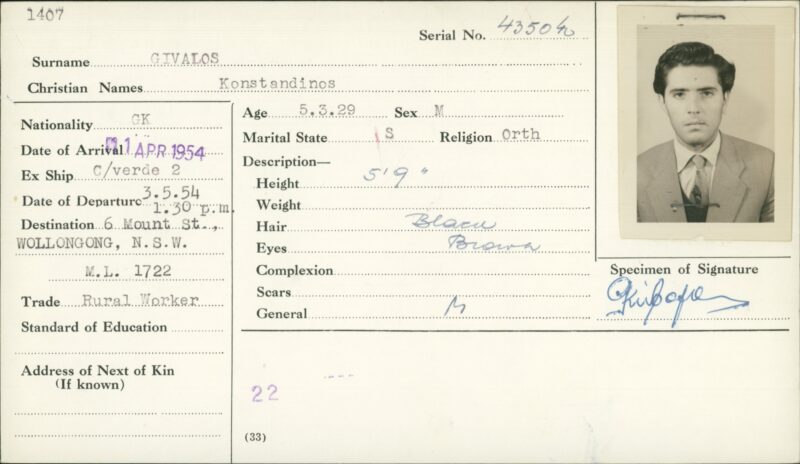 1407
Serial No. 43504
Surname GIVALOS
Christian Names Konstandinos
Nationality GK
Date of Arrival 1 APR 1954
Ex Ship C/verde 2
Date of Departure 3.5.54
1.30 p.m.
Destination 6 Mount St.,
WOLLONGONG, N.S.W.
M.L. 1722
Trade Rural Worker
Standard of Education
Address of Next of Kin
(If known)
Age 5.3.29 Sex M
Marital State S Religion Orth
Description—
Height 5'9"
Weight
Hair Black
Eyes Brown
Complexion
Scars
General M
22
(33)
Specimen of Signature